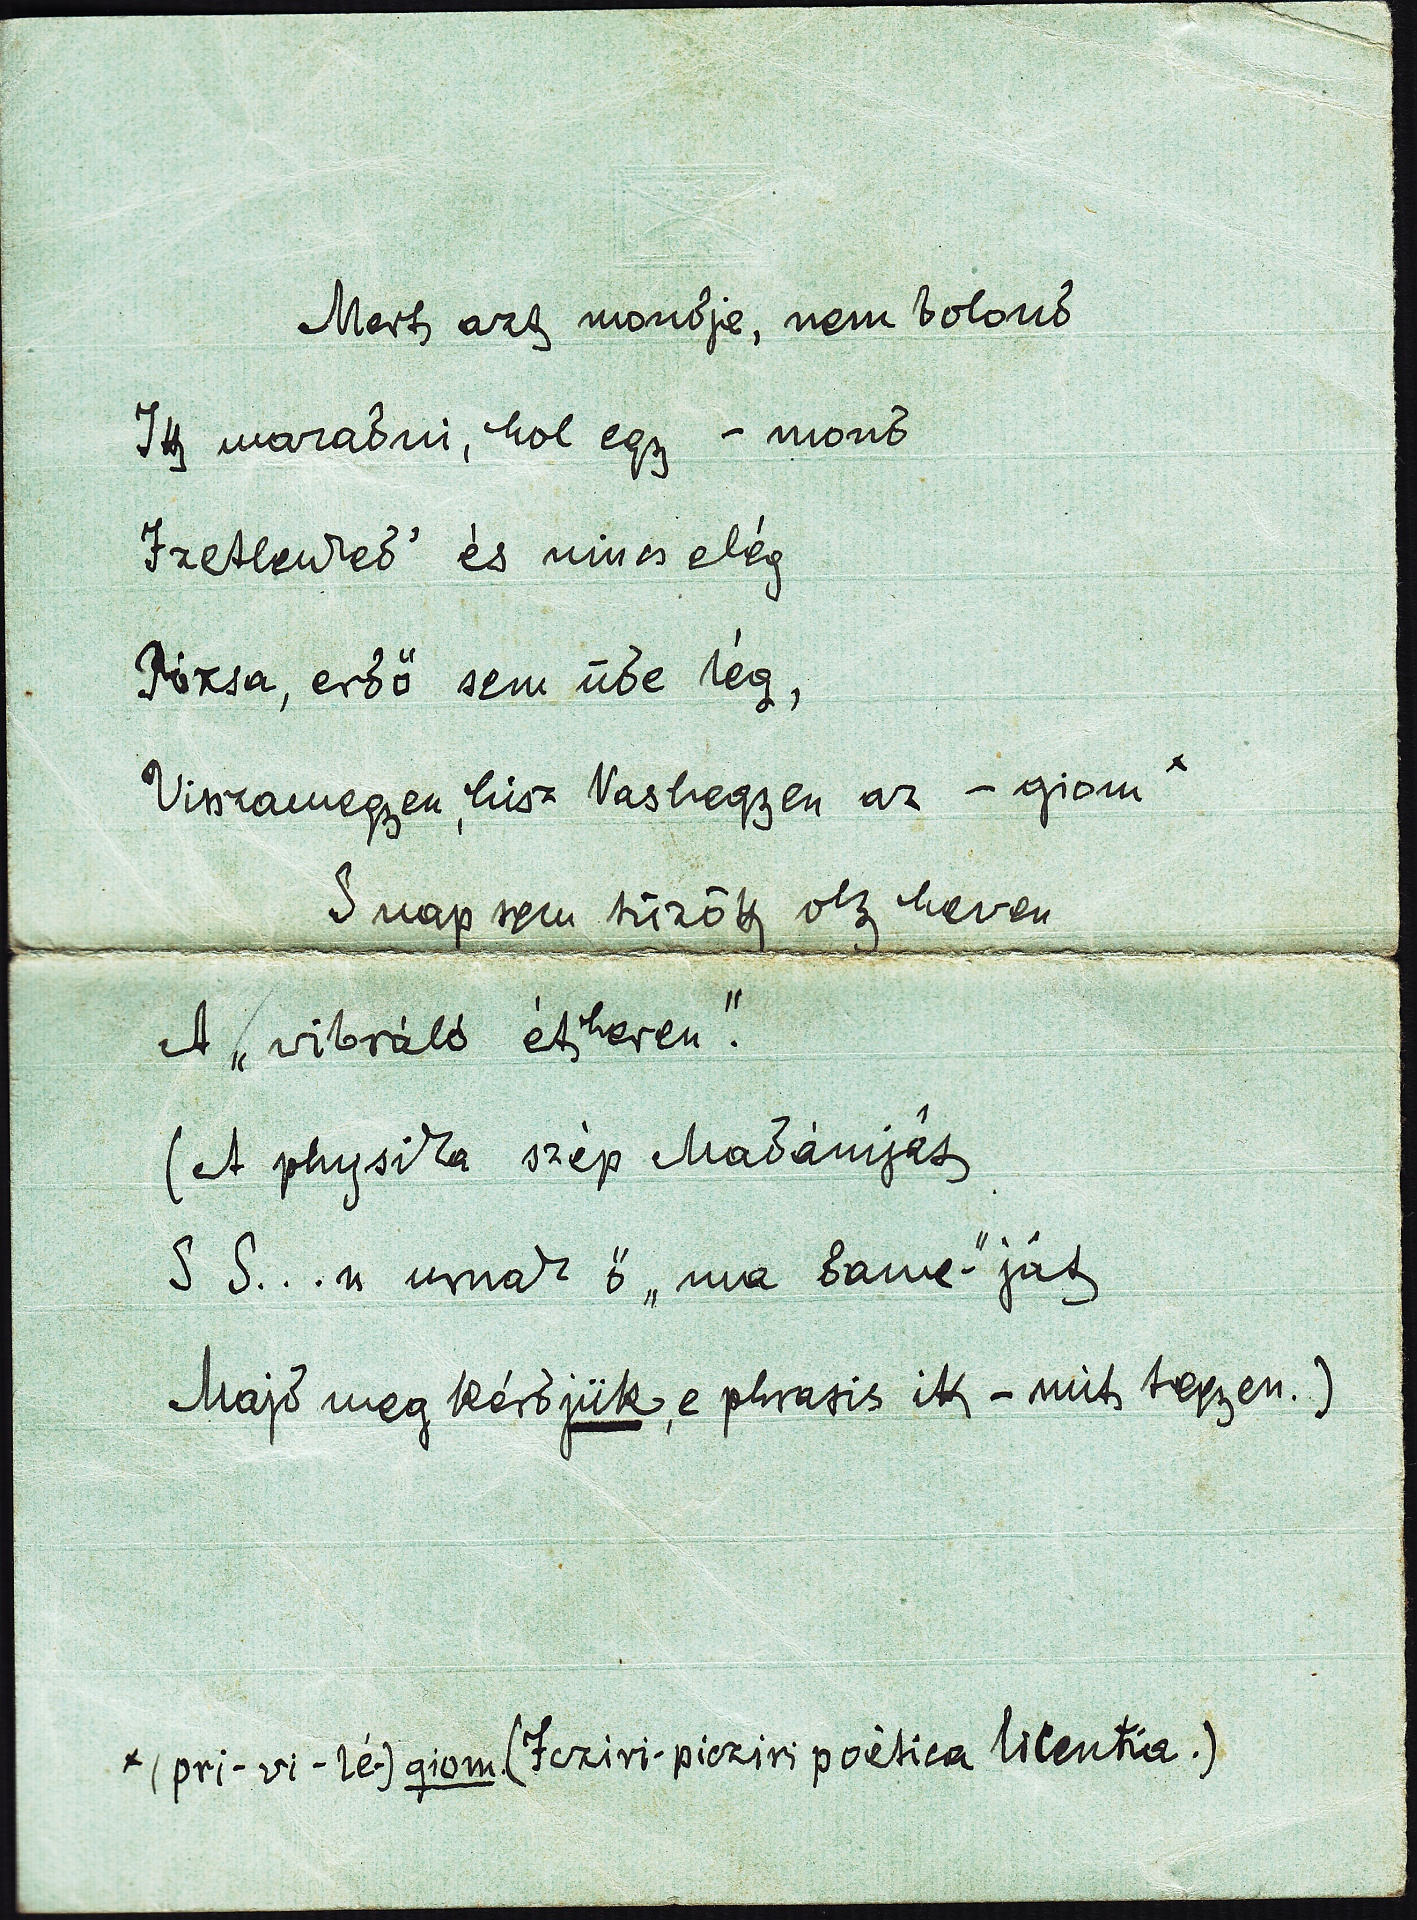 Mert azt mondja, nem bolond
Itt maradni, hol egy - mond
Izetlenked' és nincs elég
Rózsa, erdő sem üde lég,
Visszamegyen, hisz Vashegyen az - giom x
S nap sem tűzött oly heven
A „vibráló étheren".
(A physika szép Madámját
S S...n urnak ő „ma dame-"ját
Majd meg kérdjük, e phrasis itt - mit tegyen.)
x (pri-vi-lé-) giom. (Icziri-picziri poëtica licentia.)